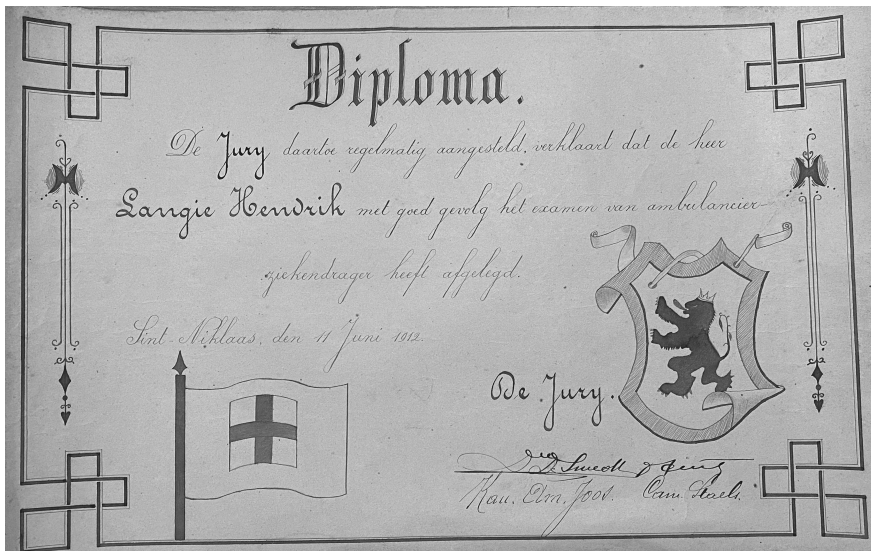 Diploma.
De Jury daartoe regelmatig aangesteld, verklaart dat de heer
Langie Hendrik met goed gevolg het examen van ambulancier-
ziekendrager heeft afgelegd.
Sint-Niklaas, den 11 Juni 1912.
De Jury.
Kan. Elm. Joos. Cam. Staels.